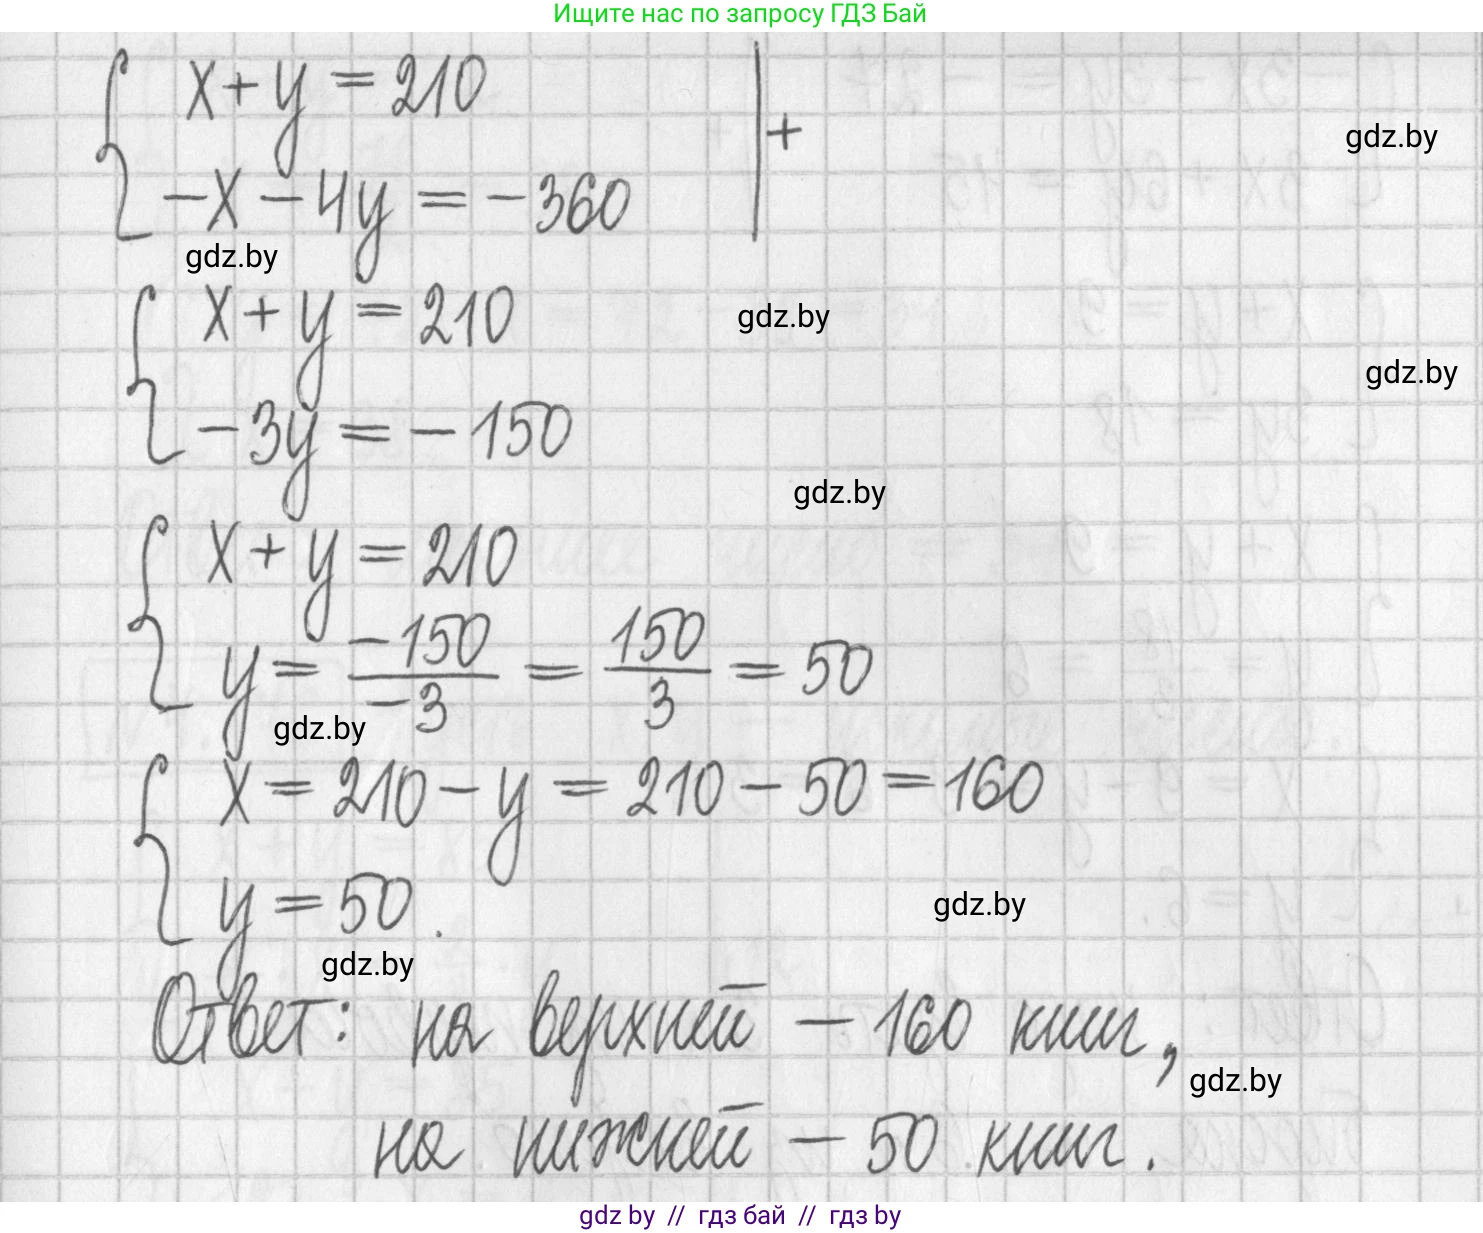 Ищите нас по запросу ГДЗ Бай
x + y = 210
+
gdz.by
-x - 4y = -360
gdz.by
x + y = 210
gdz.by
gdz.by
-3y = -150
gdz.by
x + y = 210
y = -150/-3 = 150/3 = 50
gdz.by
x = 210 - y = 210 - 50 = 160
y = 50.
gdz.by
gdz.by
Ответ: на верхней - 160 книг,
gdz.by
на нижней - 50 книг.
gdz by // гдз бай // гдз by